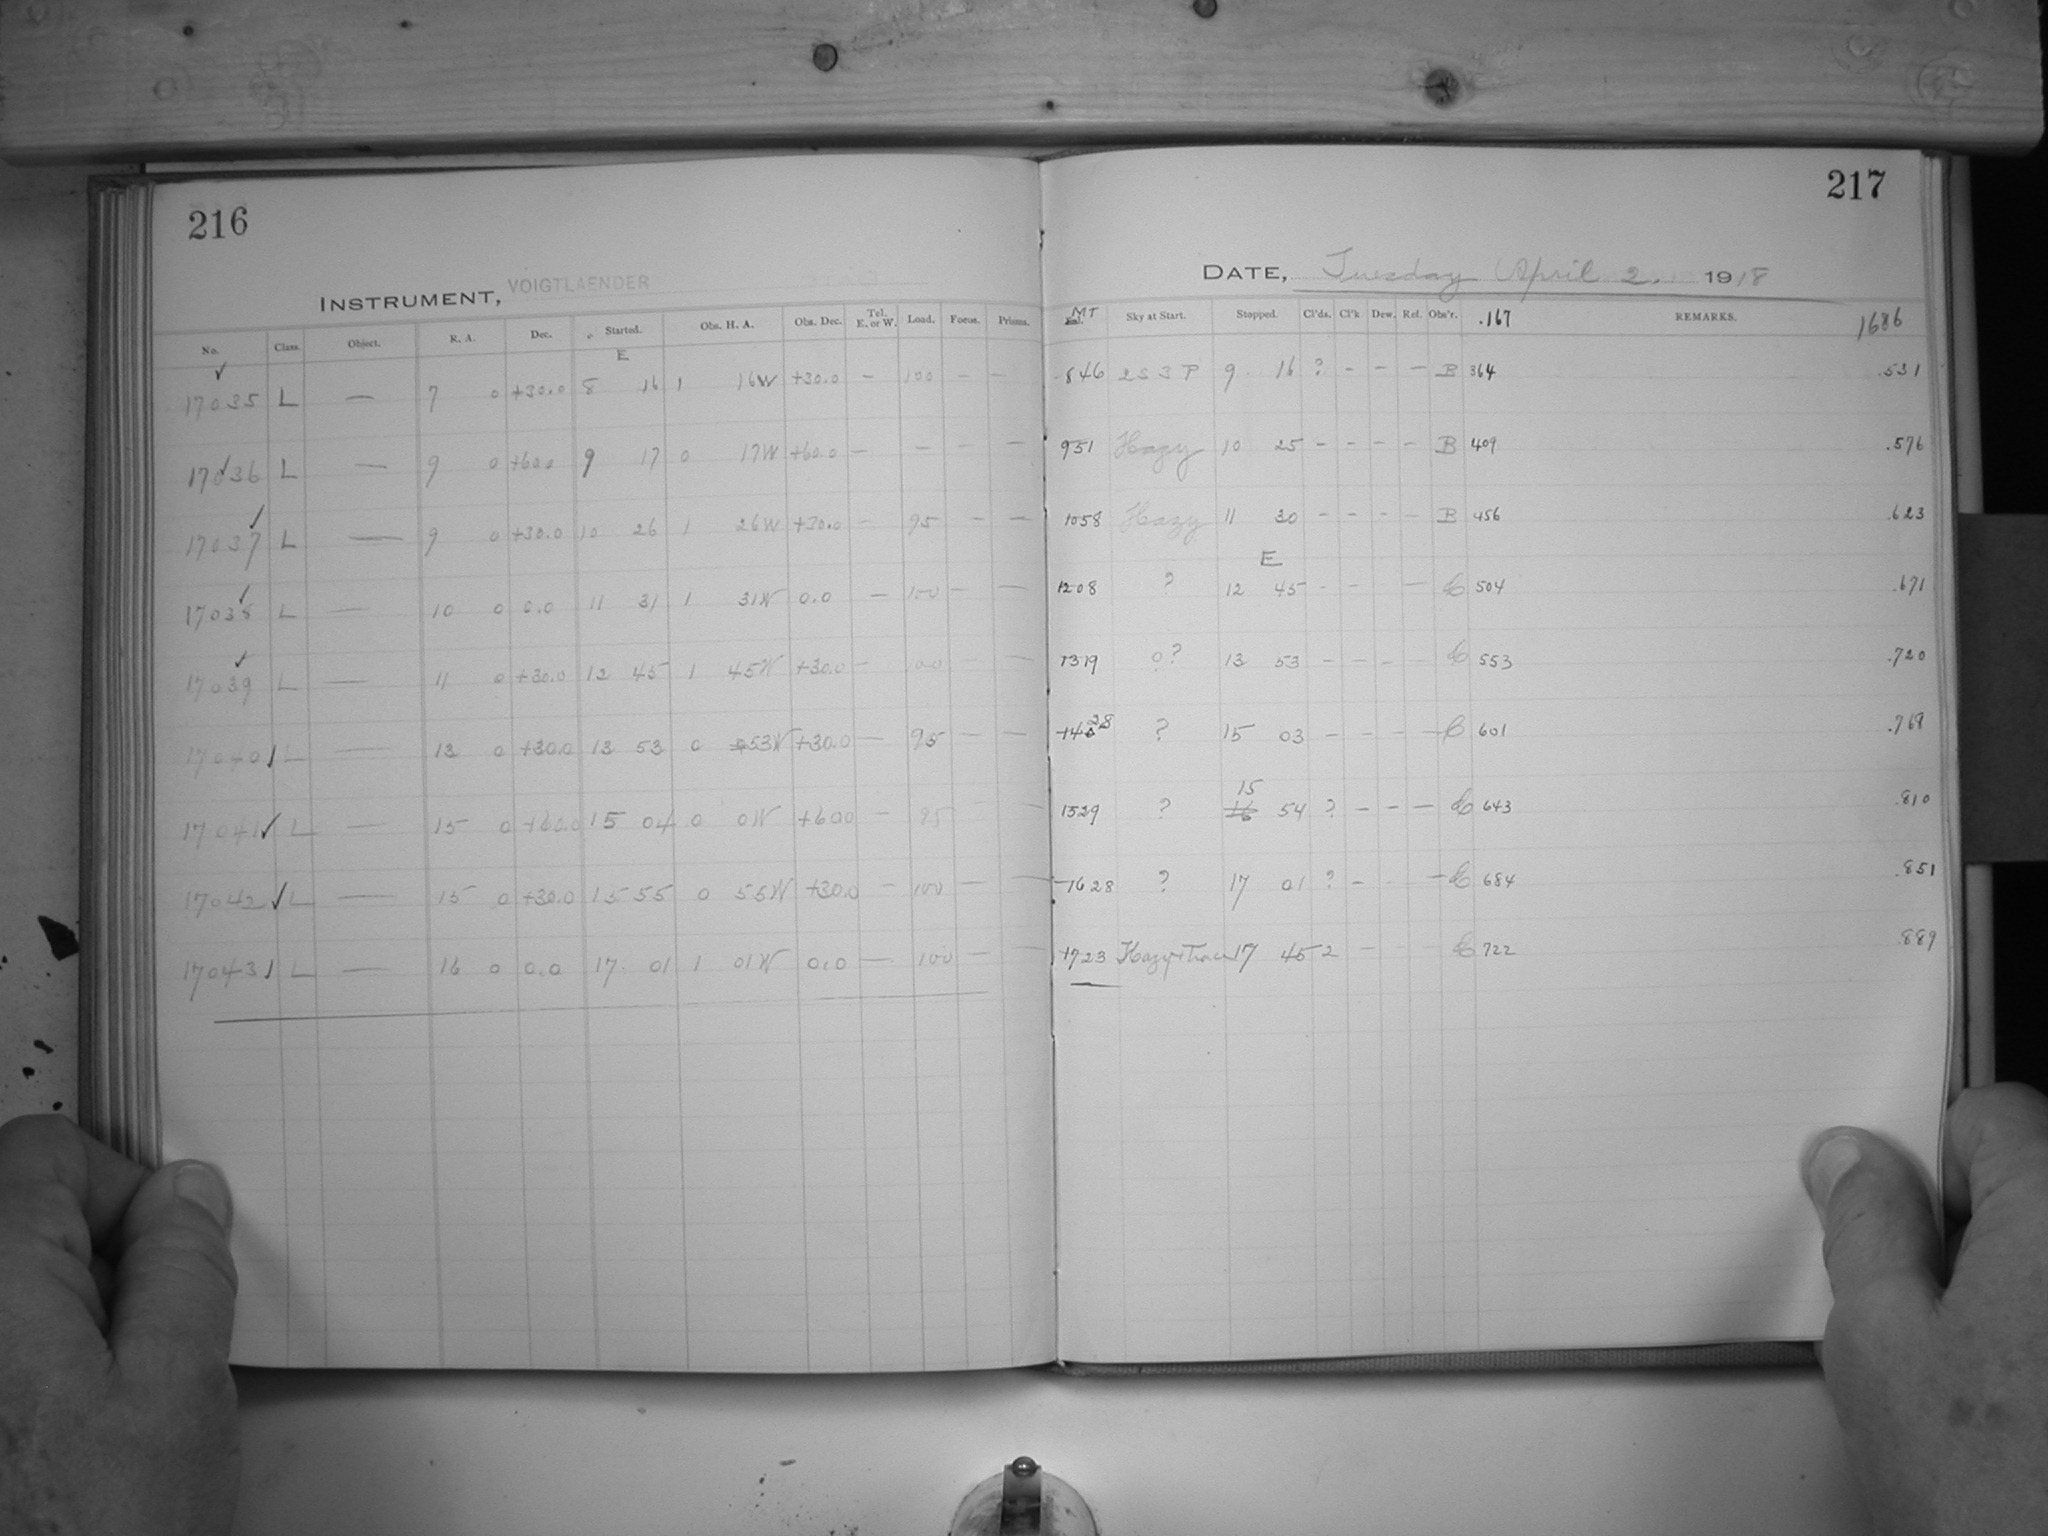 216
INSTRUMENT, VOIGTLAENDER
No. Class. Object. R. A. Dec. Started. Obs. H. A. Obs. Dec. Tel. E. or W. Load. Focus. Prisms.
E
17035 L — 7 0 +30.0 8 16 1 16W +30.0 — 100 — —
17036 L — 9 0 +60.0 9 17 0 17W +60.0 — — — —
17037 L — 9 0 +30.0 10 26 1 26W +30.0 — 95 — —
17038 L — 10 0 0.0 11 31 1 31W 0.0 — 100 — —
17039 L — 11 0 +30.0 12 45 1 45W +30.0 — 100 — —
17040 L — 13 0 +30.0 13 53 0 53W +30.0 — 95 — —
17041 L — 15 0 +60.0 15 04 0 0W +60.0 — 95 — —
17042 L — 15 0 +30.0 15 55 0 55W +30.0 — 100 — —
17043 L — 16 0 0.0 17 01 1 01W 0.0 — 100 — —
217
DATE, Tuesday April 2. 1918
MT Sky at Start. Stopped. Cl'ds. Cl'k Dew. Ref. Obs'r. .167 REMARKS. 1686
846 2S 3P 9 16 ? - - — B 364 .531
951 Hazy 10 25 - - - - B 409 .576
1058 Hazy 11 30 - - - - B 456 .623
E
1208 ? 12 45 - - — C 504 .671
1319 0? 13 53 - - - - C 553 .720
1428 ? 15 03 - - - - C 601 .768
15
1529 ? 16 54 ? - - — C 643 .810
1628 ? 17 01 ? - - — C 684 .851
1723 17 45 2 - - C 722 .889